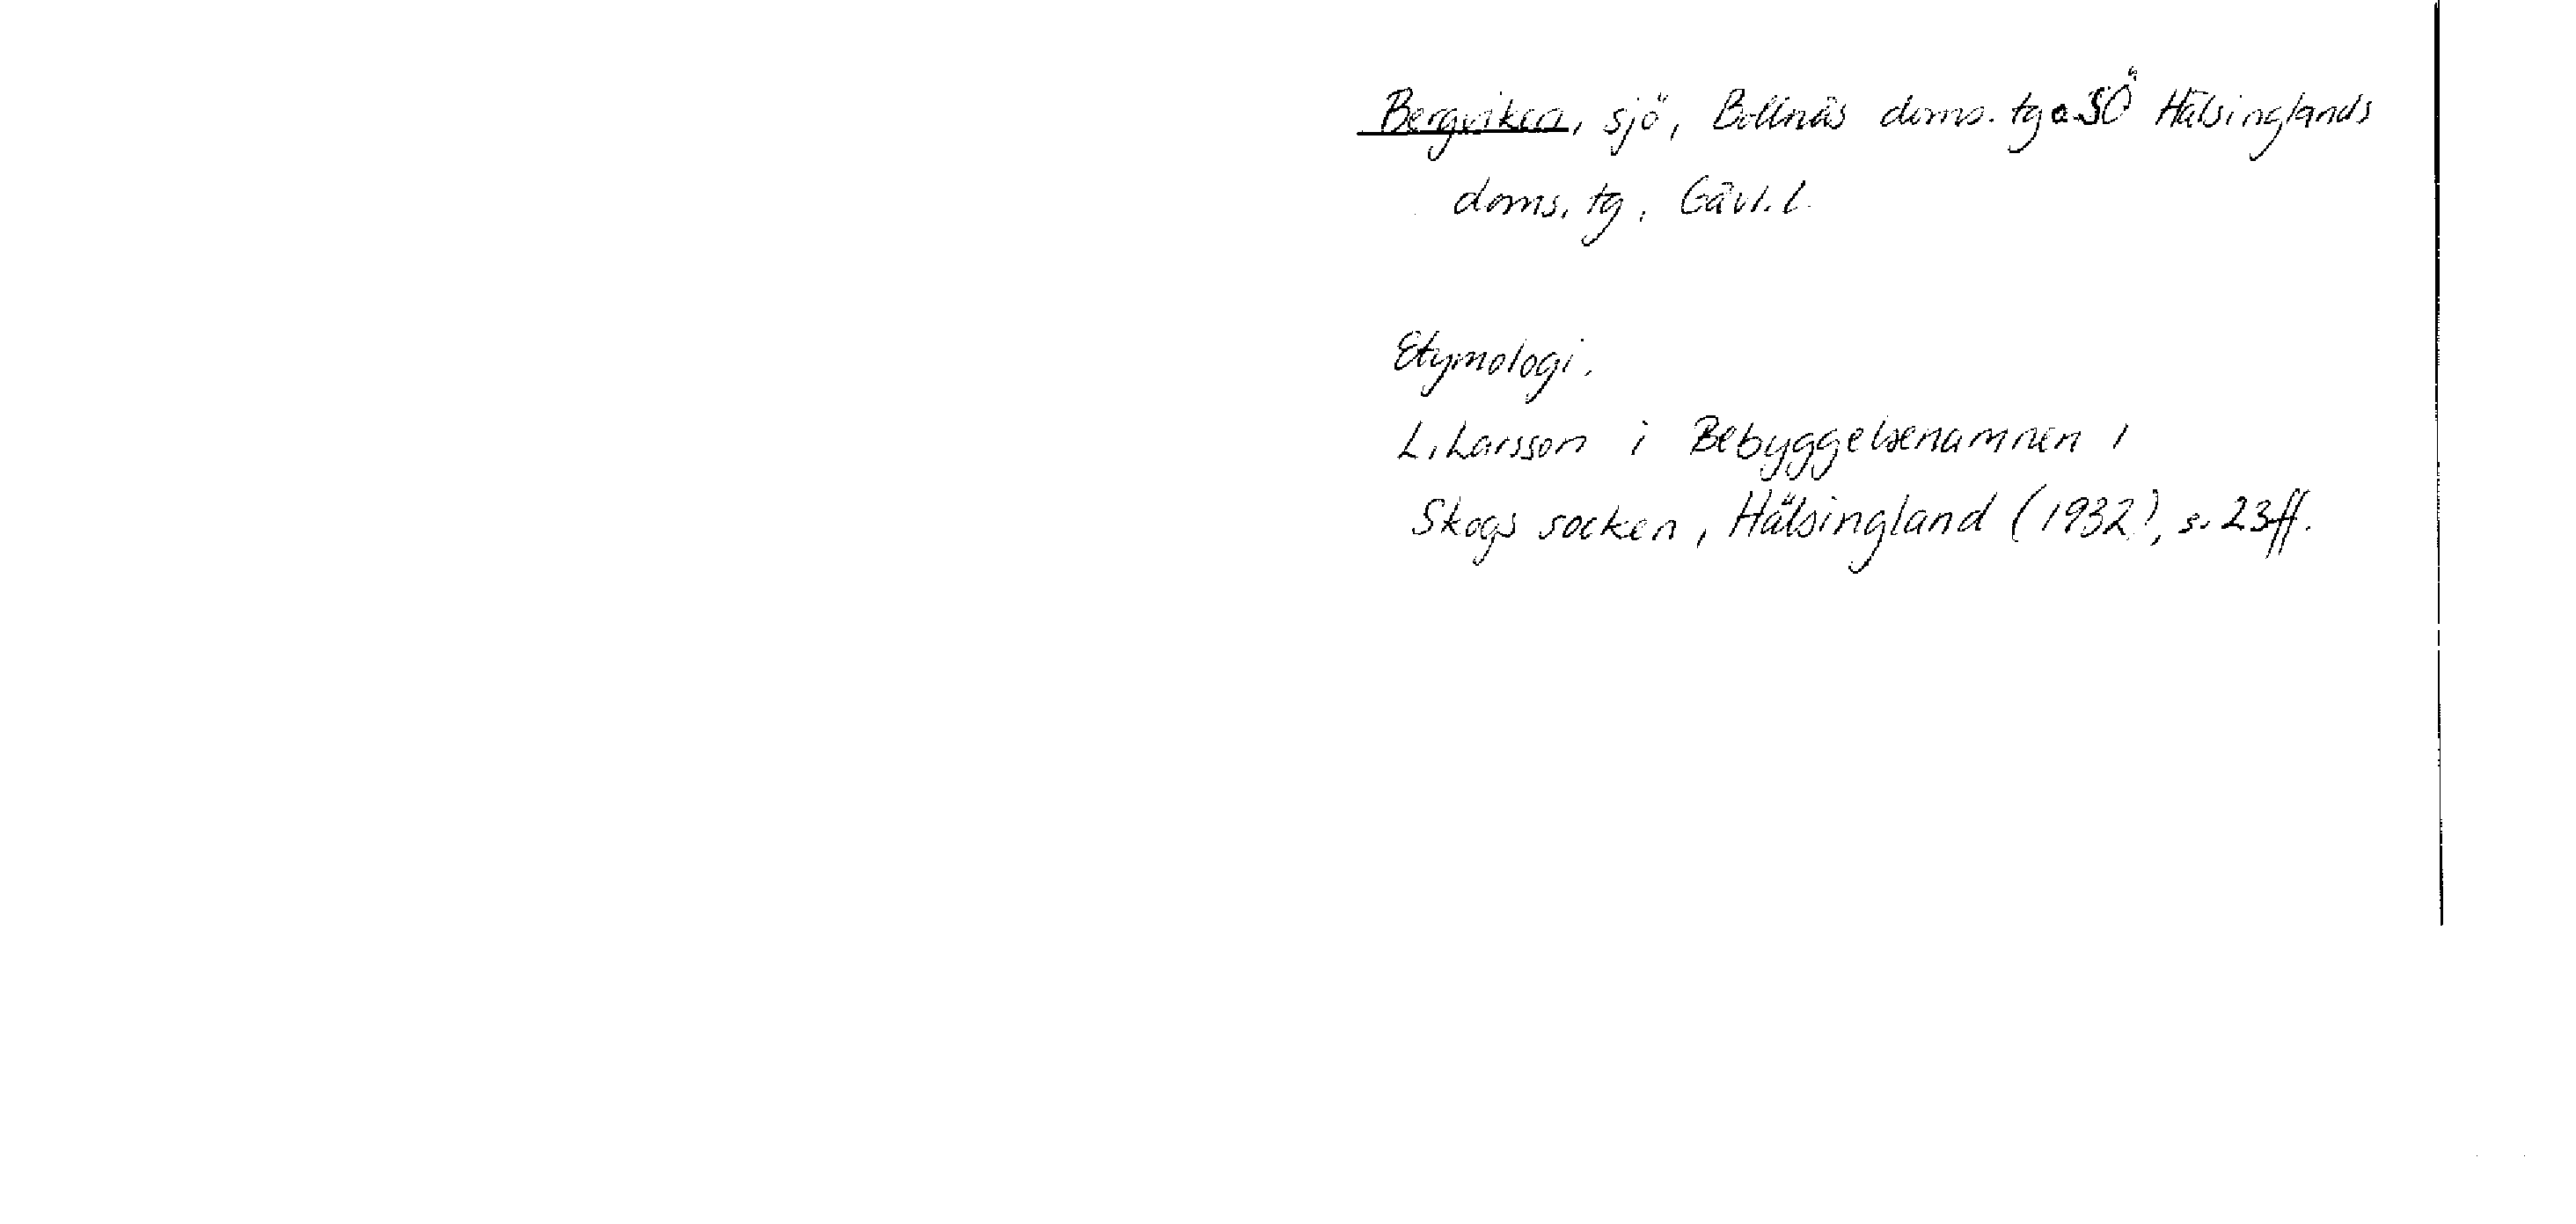 Bergviken, sjö, Bollnäs doms. tg o. SÖ Hälsinglands
doms. tg, Gävl. l.
Etymologi.
L. Larsson i Bebyggelsenamnen i
Skogs socken, Hälsingland (1932), s. 23ff.